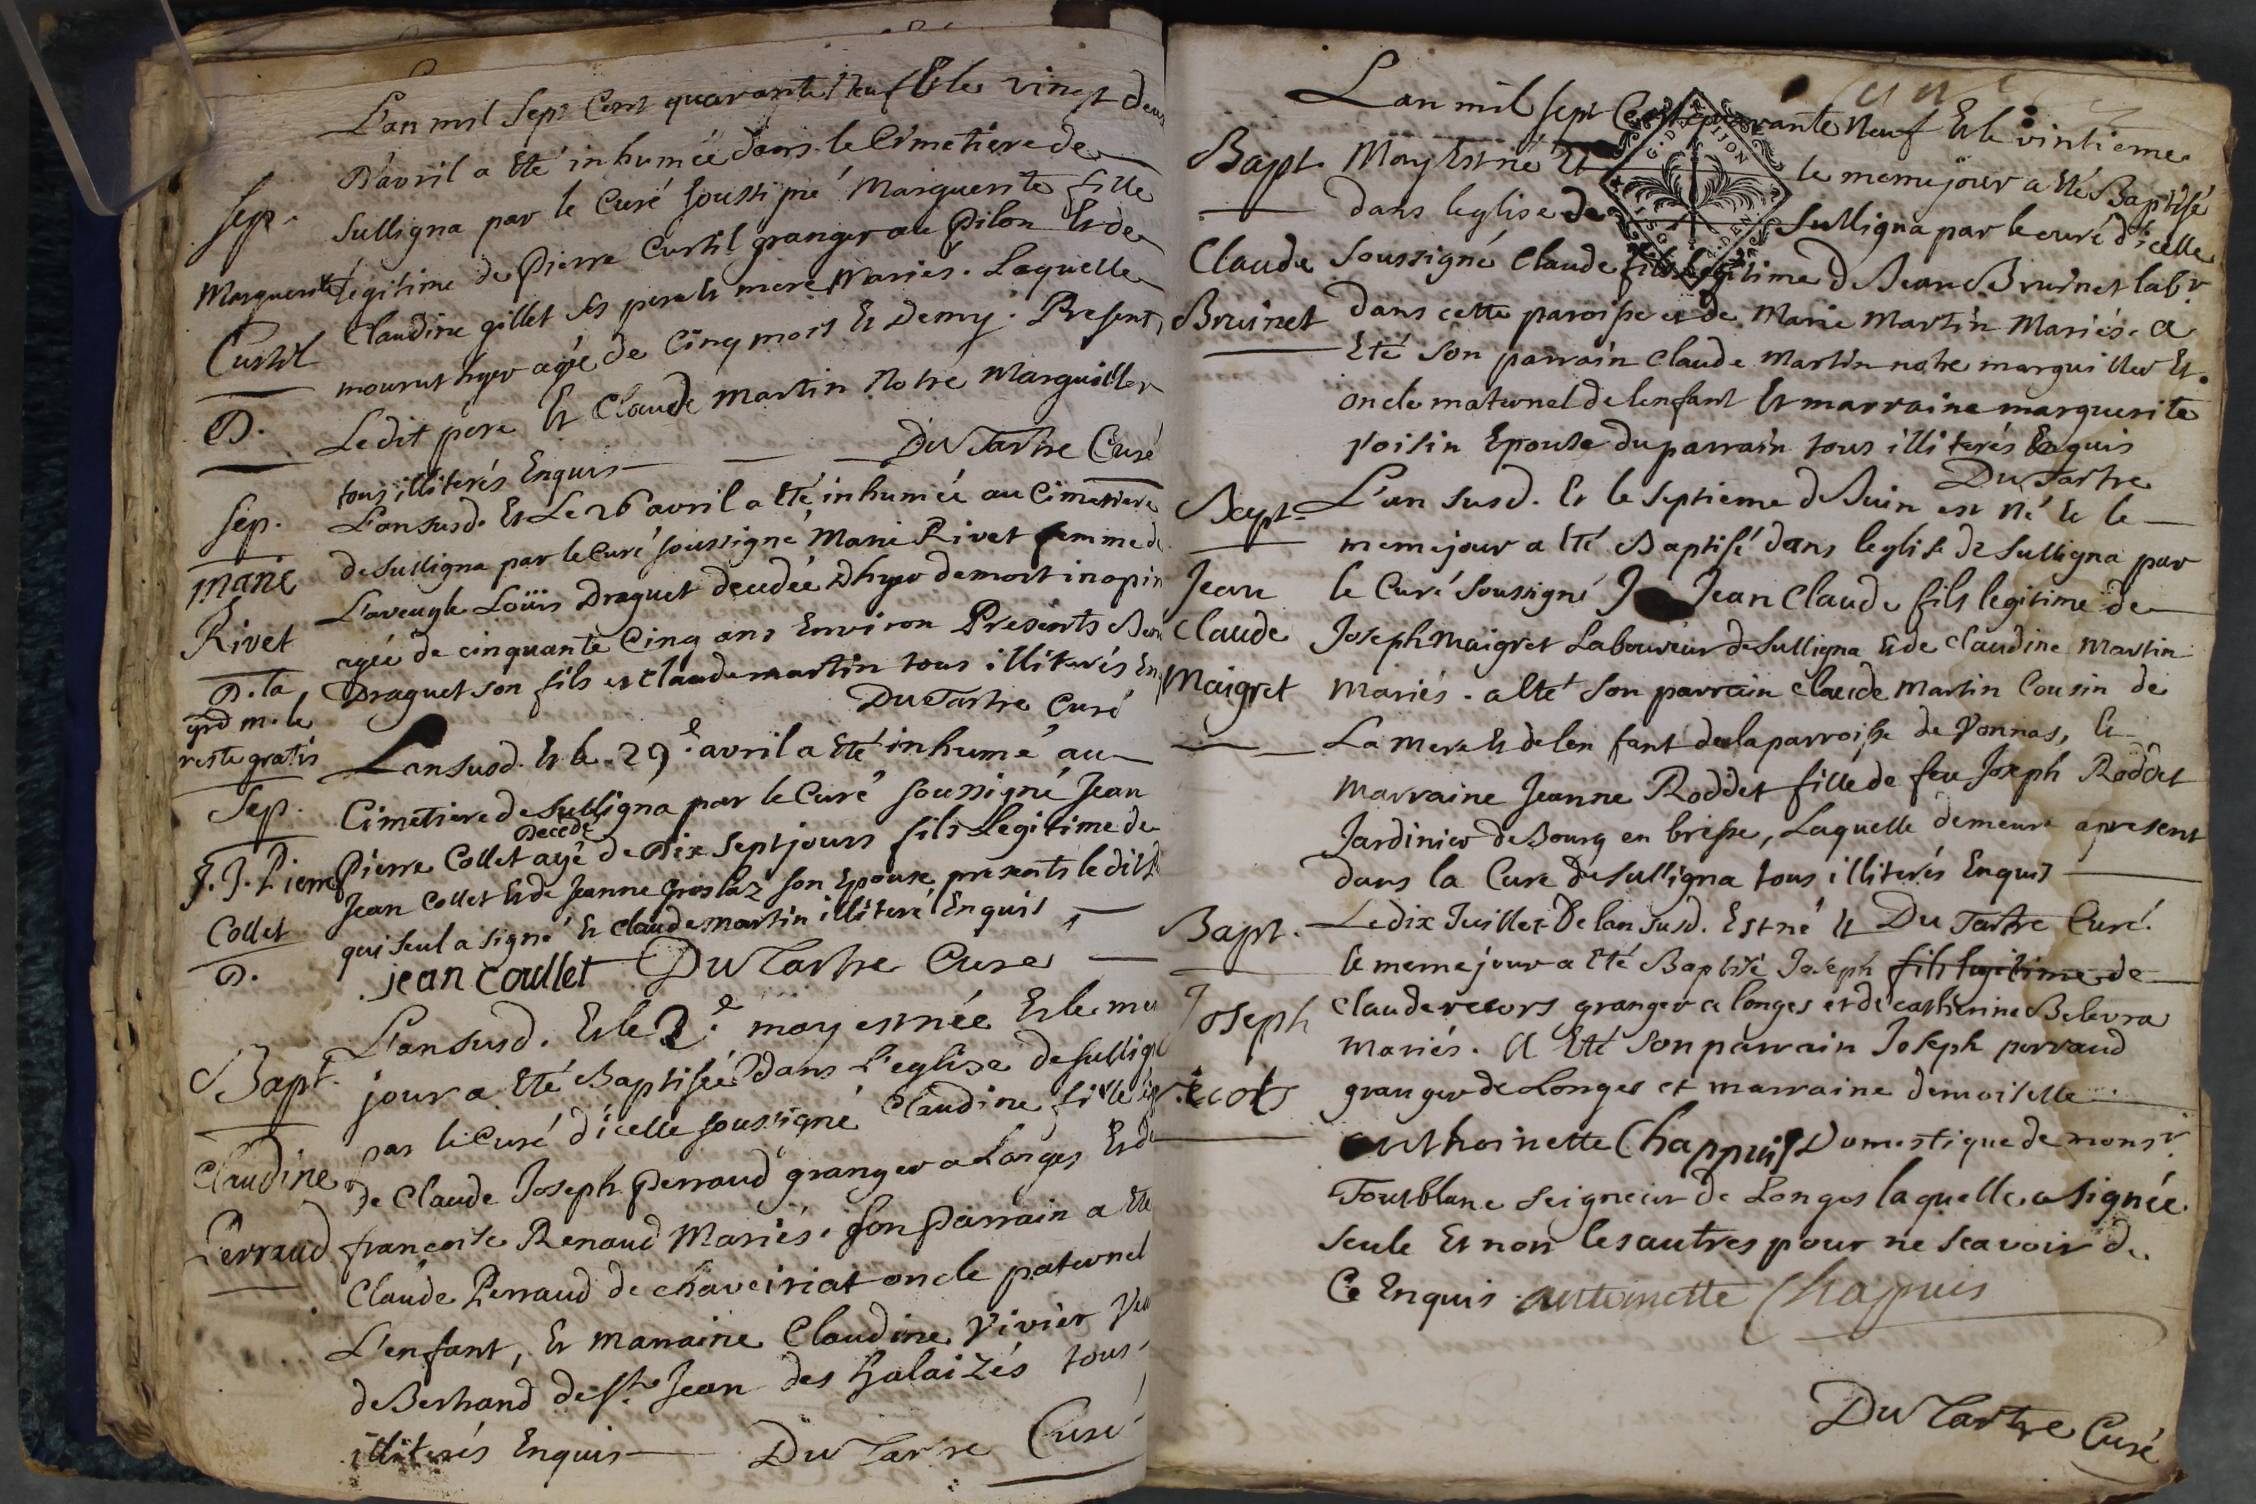 L'an mil sept Cent quarante Neuf Et le vingt deux
D'avril a Eté inhumée dans le Cimetiere de
Sep.
Sulligna par le Curé soussigné Marguerite fille
Marguerite
legitime de Pierre Curtil granger au Pilon Et de
Curtil
Claudine gillet ses pere et mere Mariés. Laquelle
mourut hyer agée de Cinq mois Et Demy. Presents
D.
Ledit pere Et Claude Martin Notre Marguiller
tous illiterés Enquis
Du Tartre Curé
Sep.
L'an susd. Et Le 26 avril a Eté inhumée au Cimetiere
Marie
de Sulligna par le Curé soussigné Marie Rivet femme de
Rivet
L'aveugle Loüis Draguet decedée D'hyer de mort inopin
agée de cinquante Cinq ans Environ Presents
D. la
Draguet son fils et Claude martin tous illiterés En
grd m. le
reste gratis
Du Tartre Curé
L'an susd. Et le 29e. avril a Eté inhumé au
Sep.
Cimetiere de Sulligna par le Curé soussigné Jean
Decedé
J. J. Pierre
Pierre Collet agé de Dix Sept jours fils Legitime de
Collet
Jean Collet Et de Jeanne Groslaz son Epouse, presents le dit
D.
qui seul a signé Et Claude martin illiteré Enquis
jean coullet Du Tartre Curé
L'an susd. Et le 2e. may est née Et le me
Bapt.
jour a Eté Baptisée Dans L'eglise de Sullig
par le Curé d'icelle soussigné Claudine fille
Claudine
de Claude Joseph Perraud granger a Longes Et de
Perraud
francoise Renaud Mariés. Son Parrain a Eté
Claude Perraud de chaveiriat oncle paternel
L'enfant, Et Marraine Claudine Vivier
de Bertrand de St. Jean des halaizés tous
illiterés Enquis Du Tartre Curé
L'an mil sept Cent quarante Neuf Et le vintieme
Bapt.
May Est né Et le meme jour a Eté Baptisé
dans leglise de Sulligna par le curé d'icelle
G. DE DIJON
Claude
Soussigné Claude fils legitime de Jean Bruinet labr.
Bruinet
Dans cette paroisse et de Marie Martin Mariés. a
Eté son parrain Claude Martin notre marguiller Et
oncle maternel de lenfant Et marraine marguerite
Voisin Epouse du parrain tous illiterés Enquis
Du Tartre
Bapt.
L'an susd. Et le septieme de Juin est Né Et le
meme jour a Eté Baptisé dans leglise de Sulligna par
Jean
le Curé soussigné Jean Claude fils legitime de
Claude
Joseph Maigret Laboureur de Sulligna Et de Claudine Martin
Maigret
Mariés. a Eté son parrain Claude Martin Cousin de
La Mere Et de len fant de la parroisse de Vonnas, Et
Marraine Jeanne Roddet fille de feu Joseph Roddet
Jardinier de Bourg en bresse, Laquelle demeure apresent
dans la Cure de Sulligna tous illiterés Enquis
Du Tartre Curé.
Bapt.
Le dix Juillet De lan susd. Est né Et
le meme jour a Eté Baptisé Joseph fils legitime de
Joseph
Claude recors granger a longes et de catherine Belevra
Mariés. A Eté son parrain Joseph perraud
granger de Longes et marraine demoiselle
Anthoinette Chappuis Domestique de monsr.
Toutblanc Seigneur de Longes laquelle a signée
seule Et non les autres pour ne scavoir de
Ce Enquis. antoinette Chapuis
Du Tartre Curé